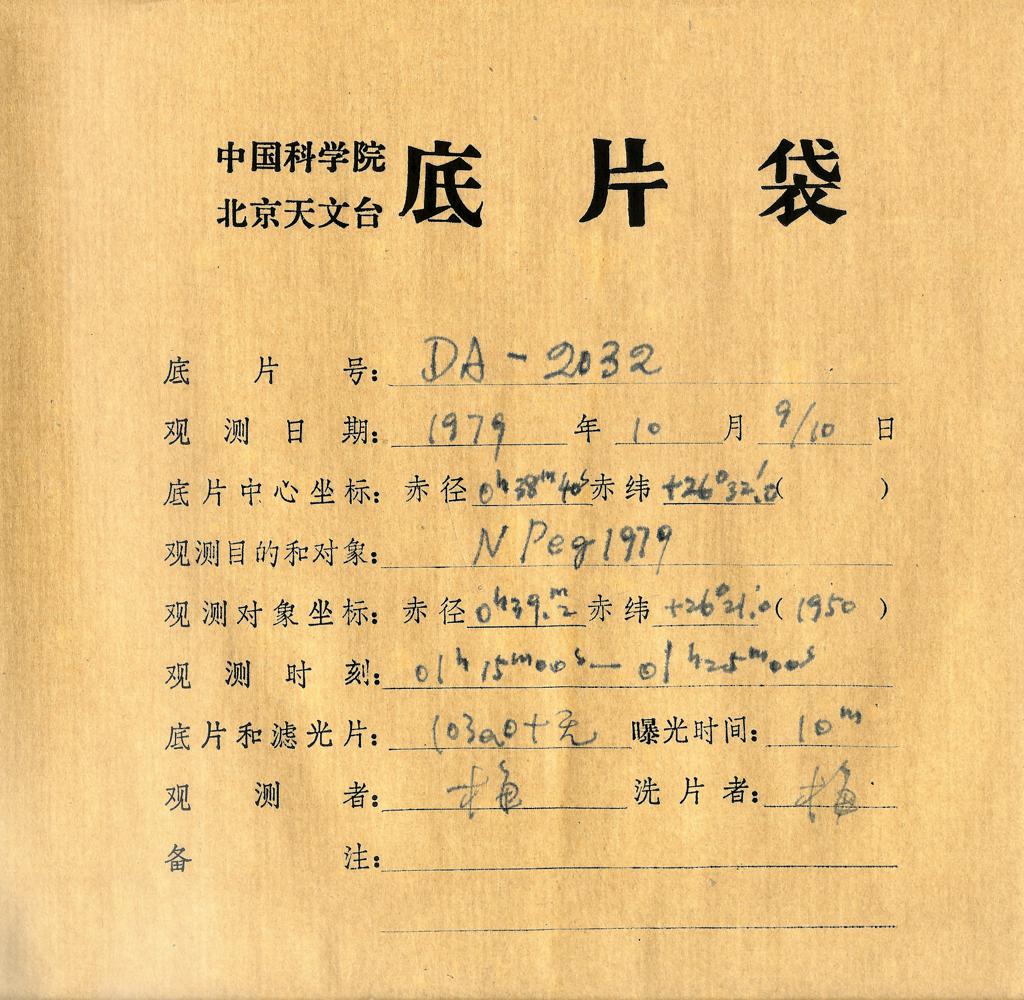 中国科学院
北京天文台 底片袋
底片号: DA-2032
观测日期: 1979 年 10 月 9/10 日
底片中心坐标: 赤径 0ʰ38ᵐ40ˢ 赤纬 +26°32′.0 ( )
观测目的和对象: N Peg 1979
观测对象坐标: 赤径 0ʰ39.ᵐ2 赤纬 +26°21′.0 (1950)
观测时刻: 01ʰ15ᵐ00ˢ — 01ʰ25ᵐ00ˢ
底片和滤光片: 103aO+无 曝光时间: 10ᵐ
观测者: 梅 洗片者: 梅
备注: